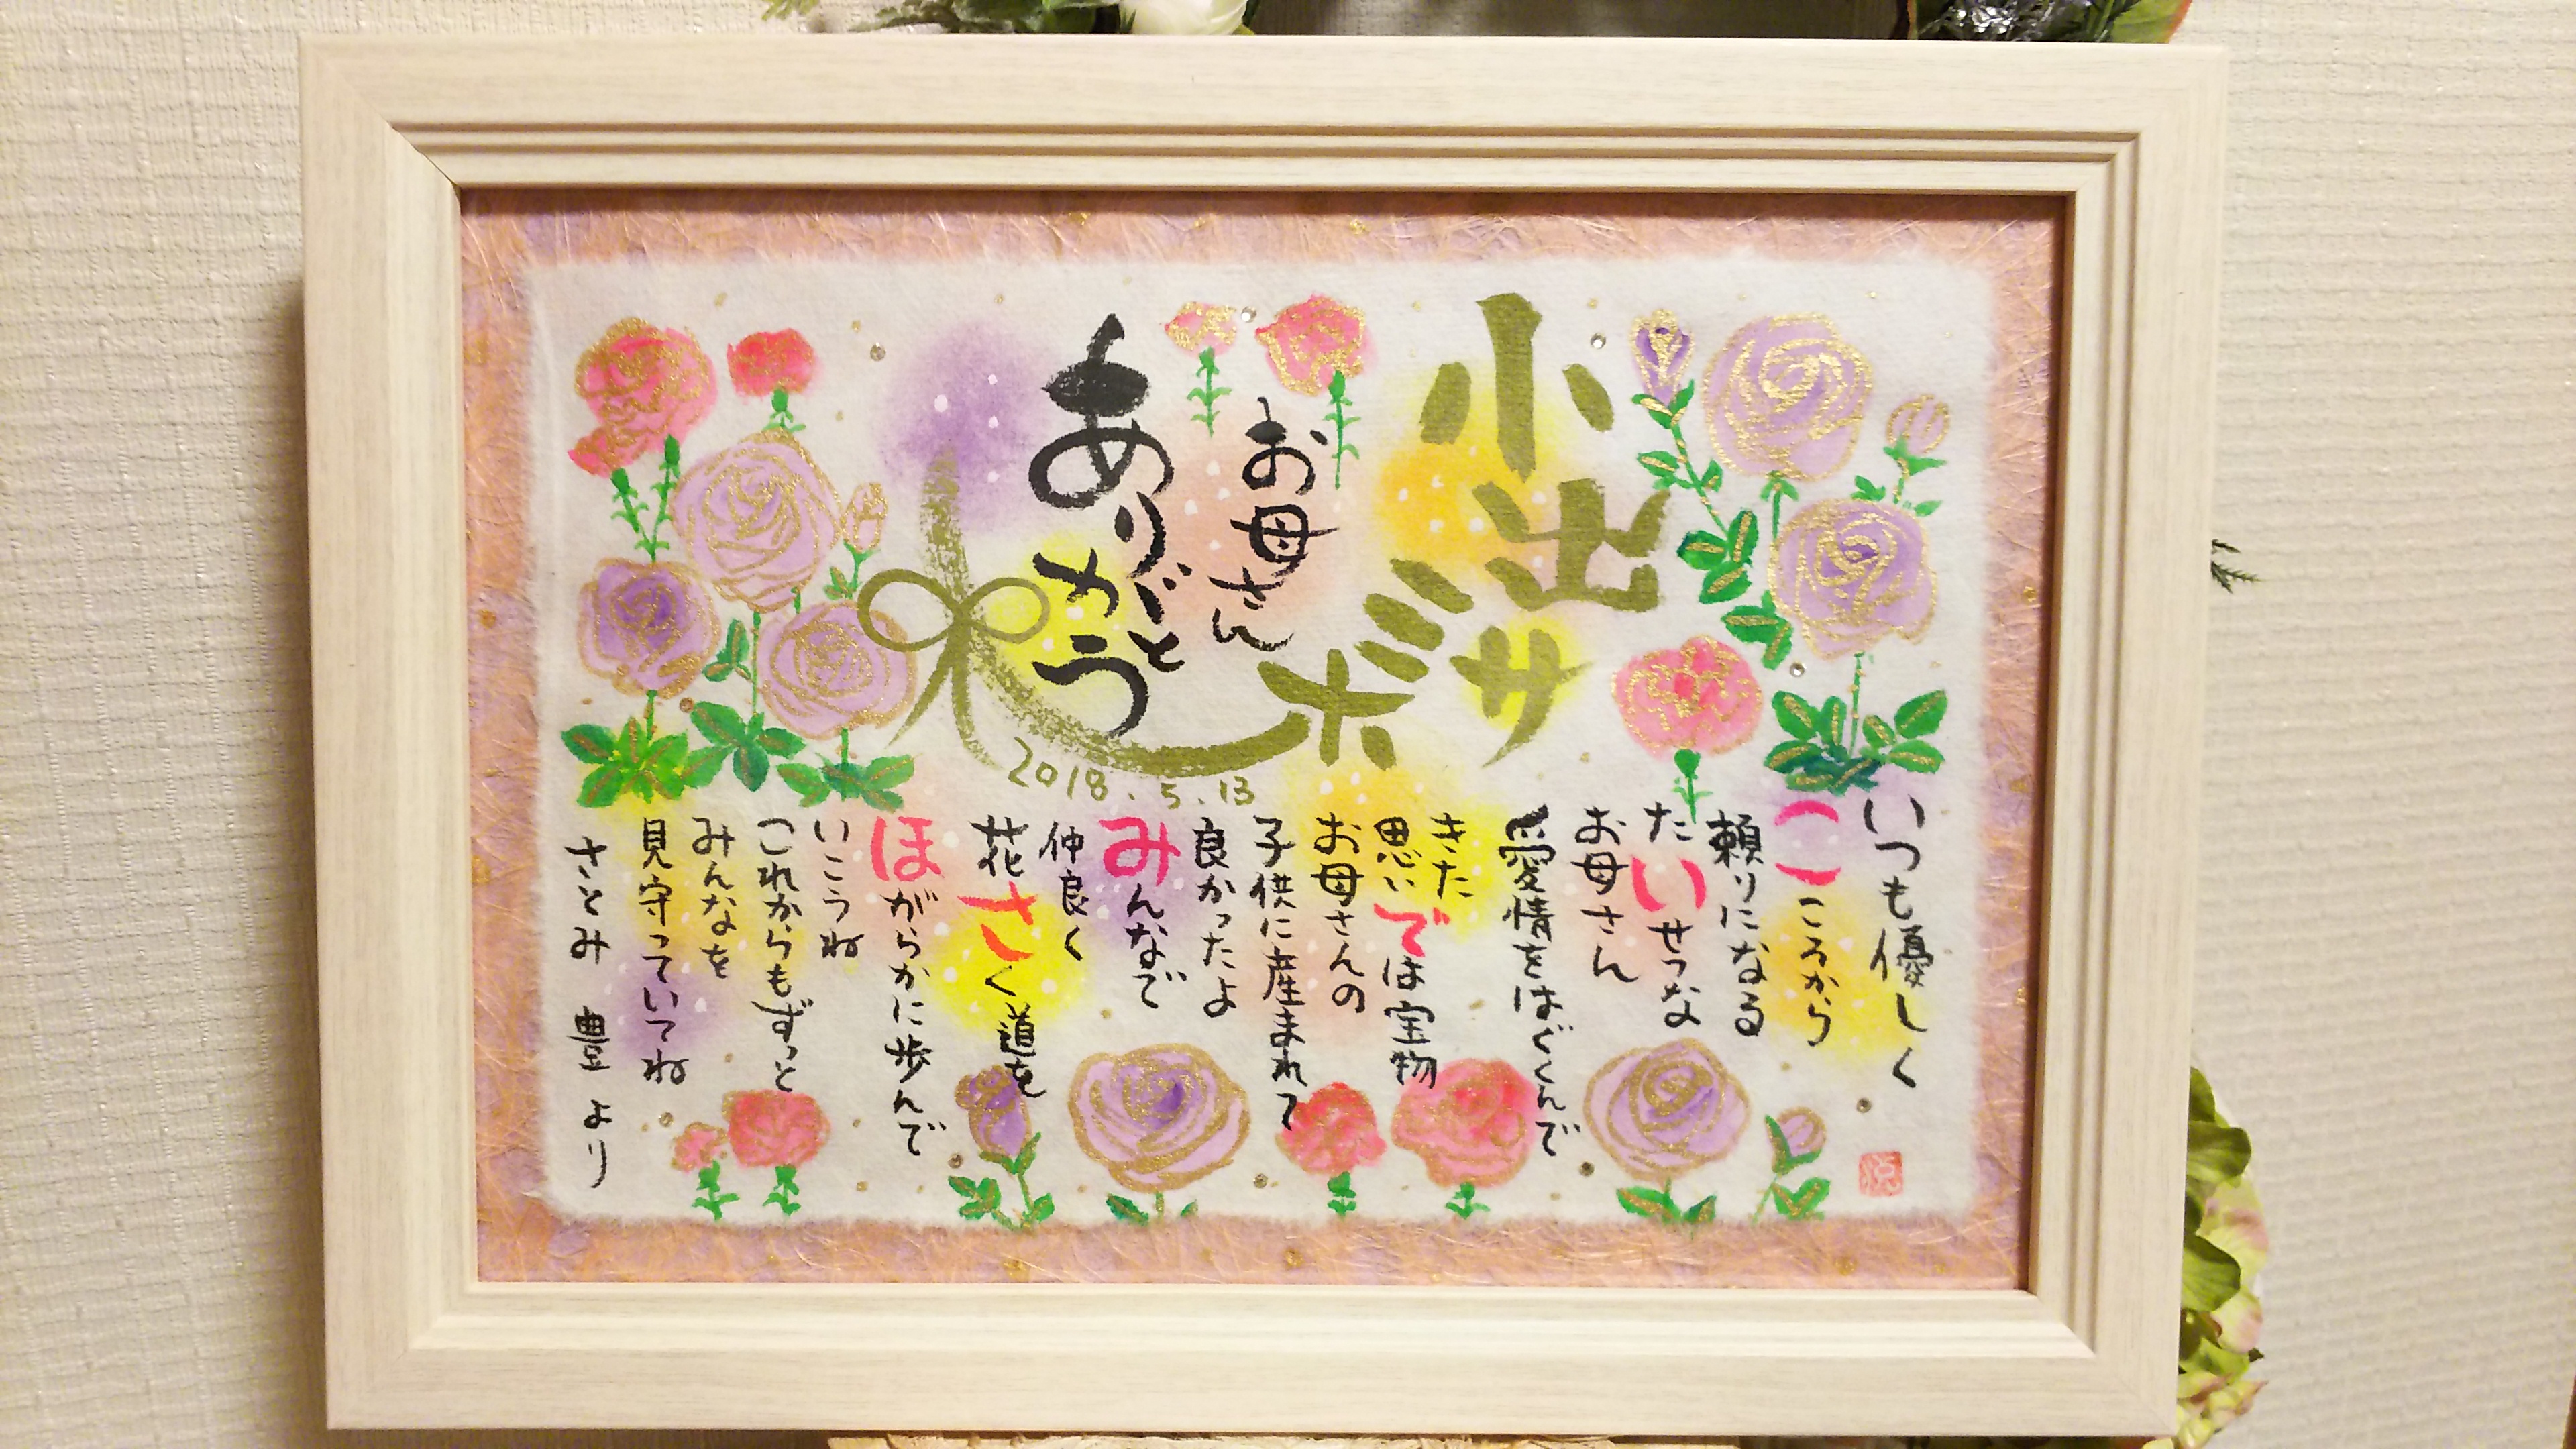 小出
ミサホ
お母さん
ありがとう
2018.5.13
いつも優しく
こころから
頼りになる
たいせつな
お母さん
愛情をはぐくんで
きた
思いでは宝物
お母さんの
子供に産まれて
良かったよ
みんなで
仲良く
花さく道を
ほがらかに歩んで
いこうね
これからもずっと
みんなを
見守っていてね
さとみ 豊より